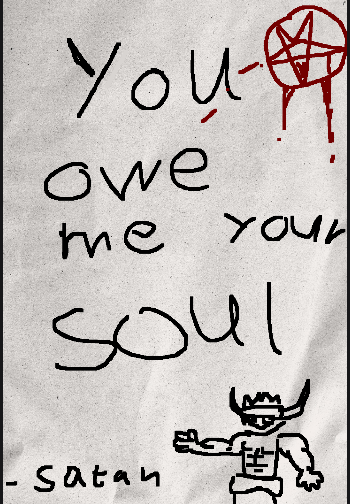 You
owe
me your
soul
- satan